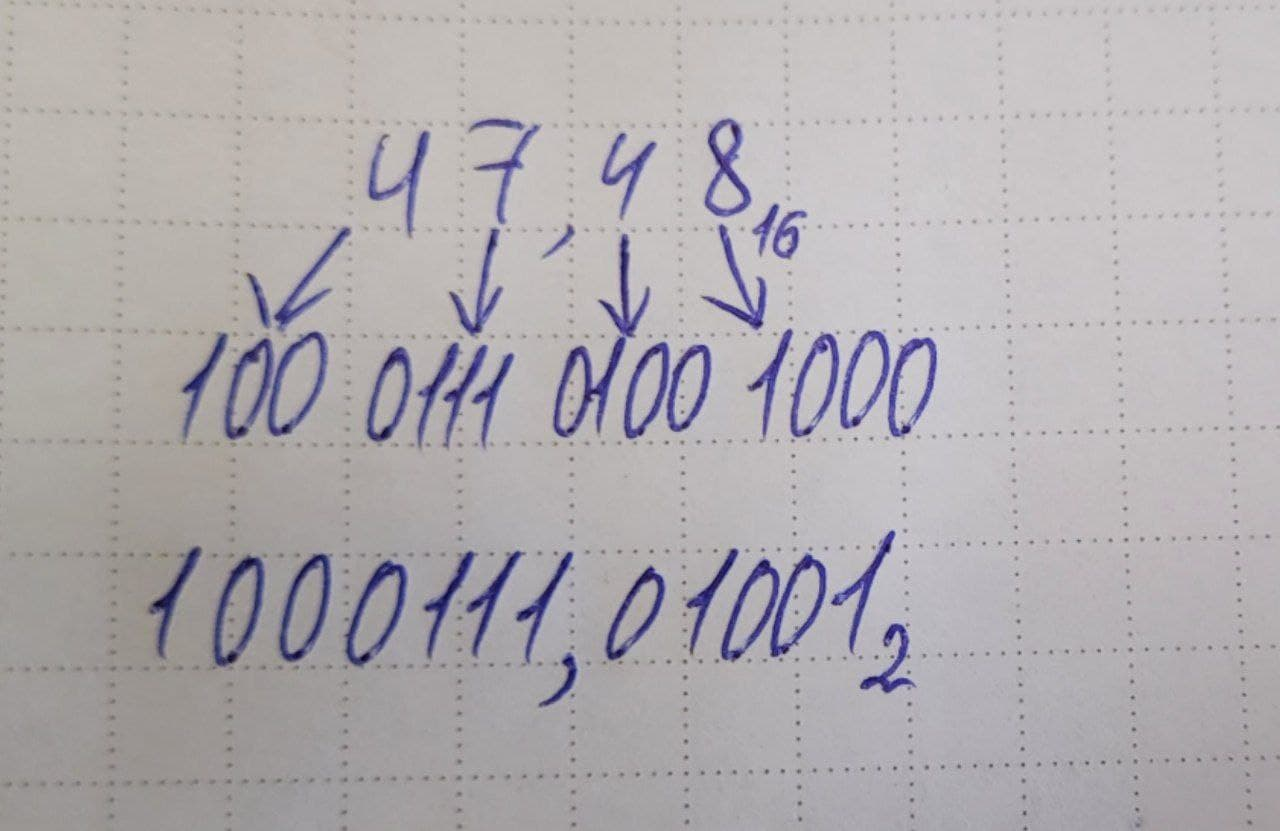 47,48₁₆
100 0111 0100 1000
1000111,01001₂